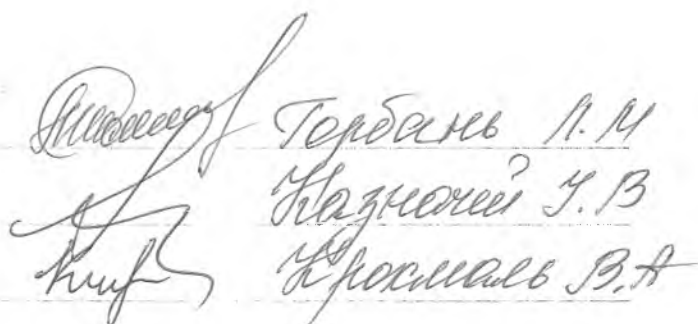 Горбань Л. М
Казначей І. В
Крохмаль В. А